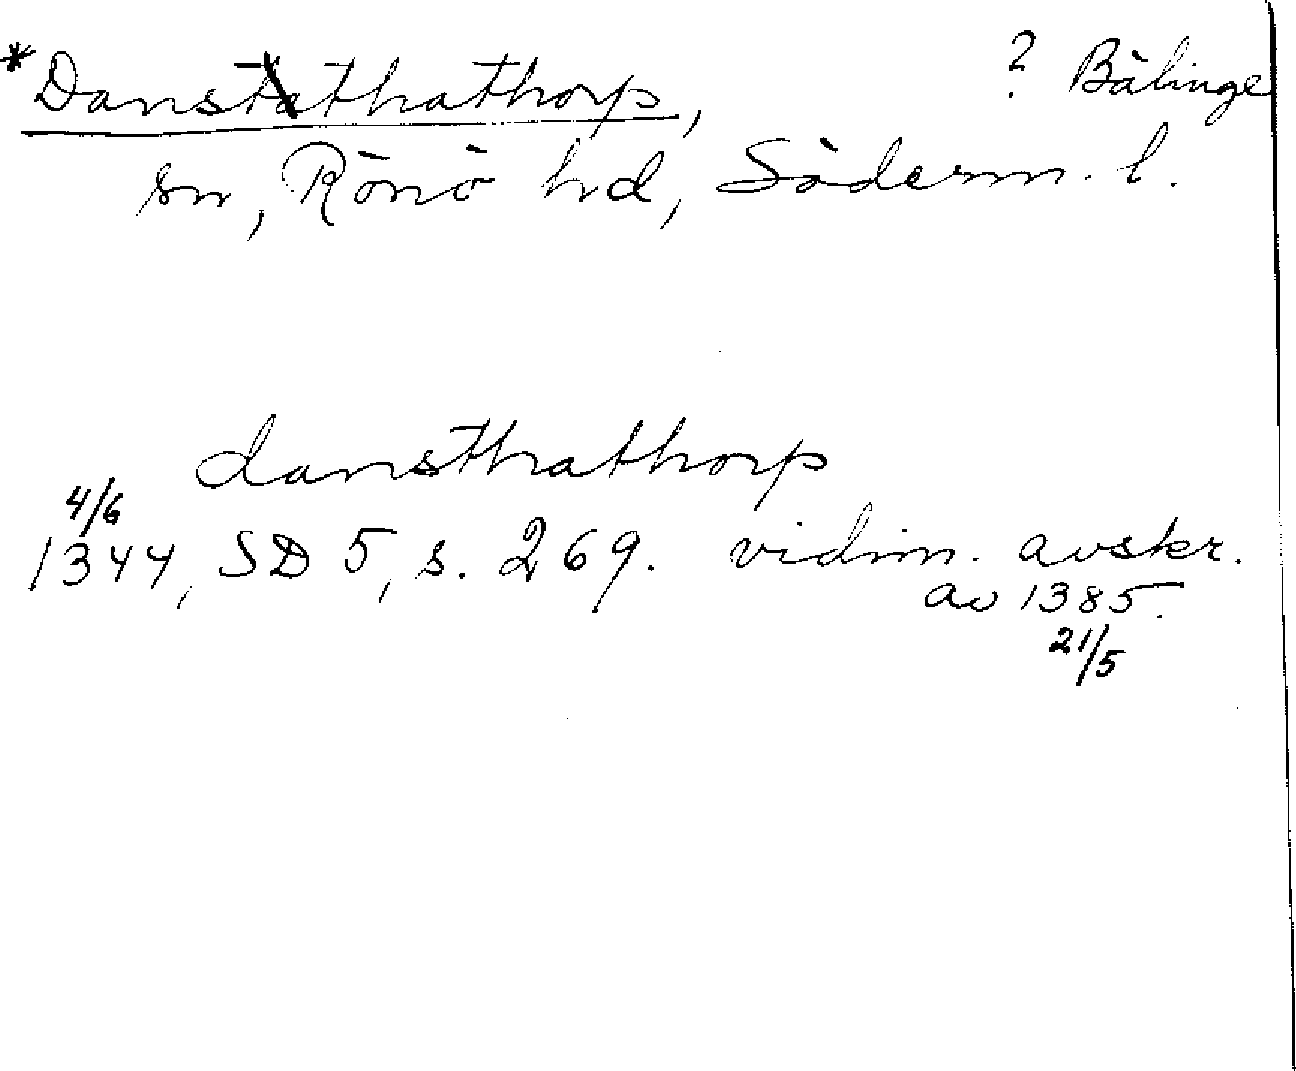 *Dansthathorp, ? Bälinge
sn, Rönö hd, Söderm. l.
dansthathorp
4/6
1344, SD 5, s. 269. vidim. avskr.
av 1385.
21/5